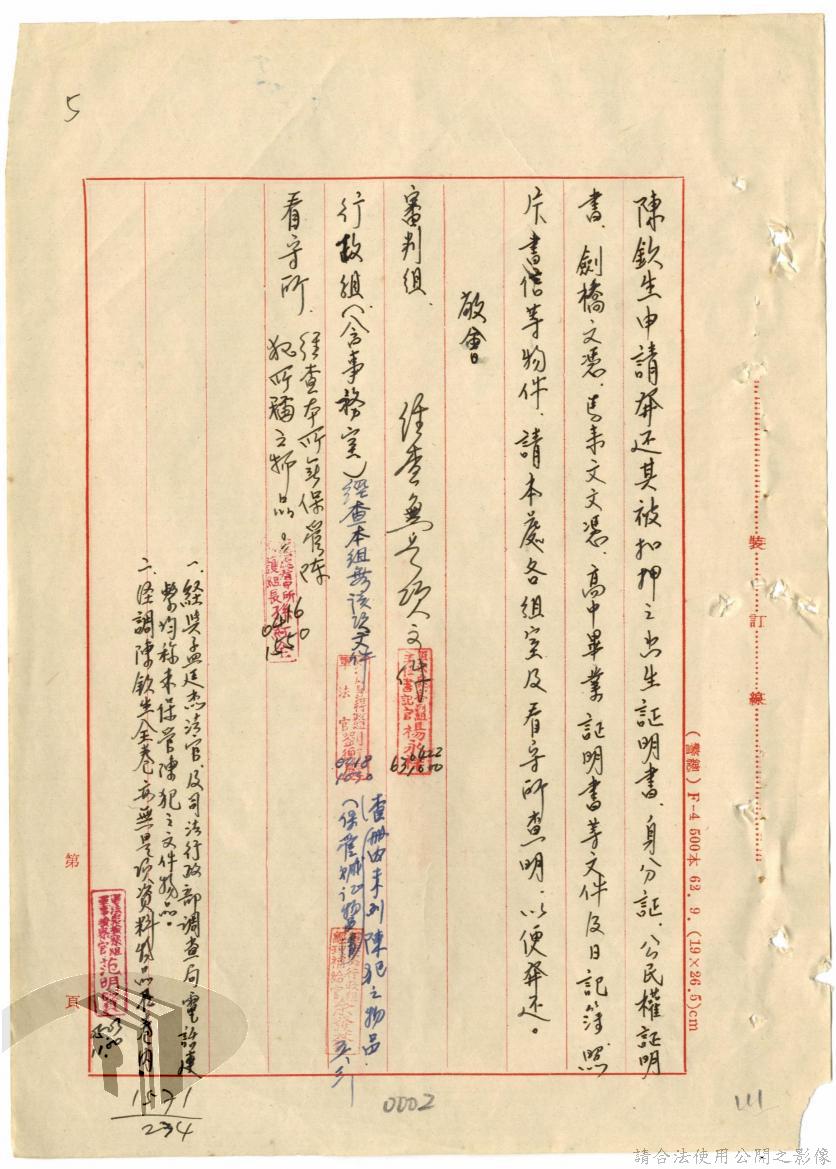 5
裝訂線
(議譯) F-4 500本 62. 9. (19×26.5)cm
陳欽生申請發还其被扣押之出生証明書、身分証、公民權証明
書、劍橋文憑、馬來文文憑、高中畢業証明書等文件及日記簿、照
片、書信等物件,請本處各組室及看守所查明,以便發还。
敬會
審判組、
經查無是項文件
行政組(含事務室)
經查本組無該項文件
查冊內未列陳犯之物品
看守所、
經查本所無保管陳
犯所稱之物品。
0416
1550
一、經與孟廷杰法官及司法行政部調查局電話連
繫均称未保管陳犯之文件物品。
二、經調陳欽生全卷亦無是項資料物品在卷內。
范明
第 頁
1571
234
0002
111
請合法使用公開之影像